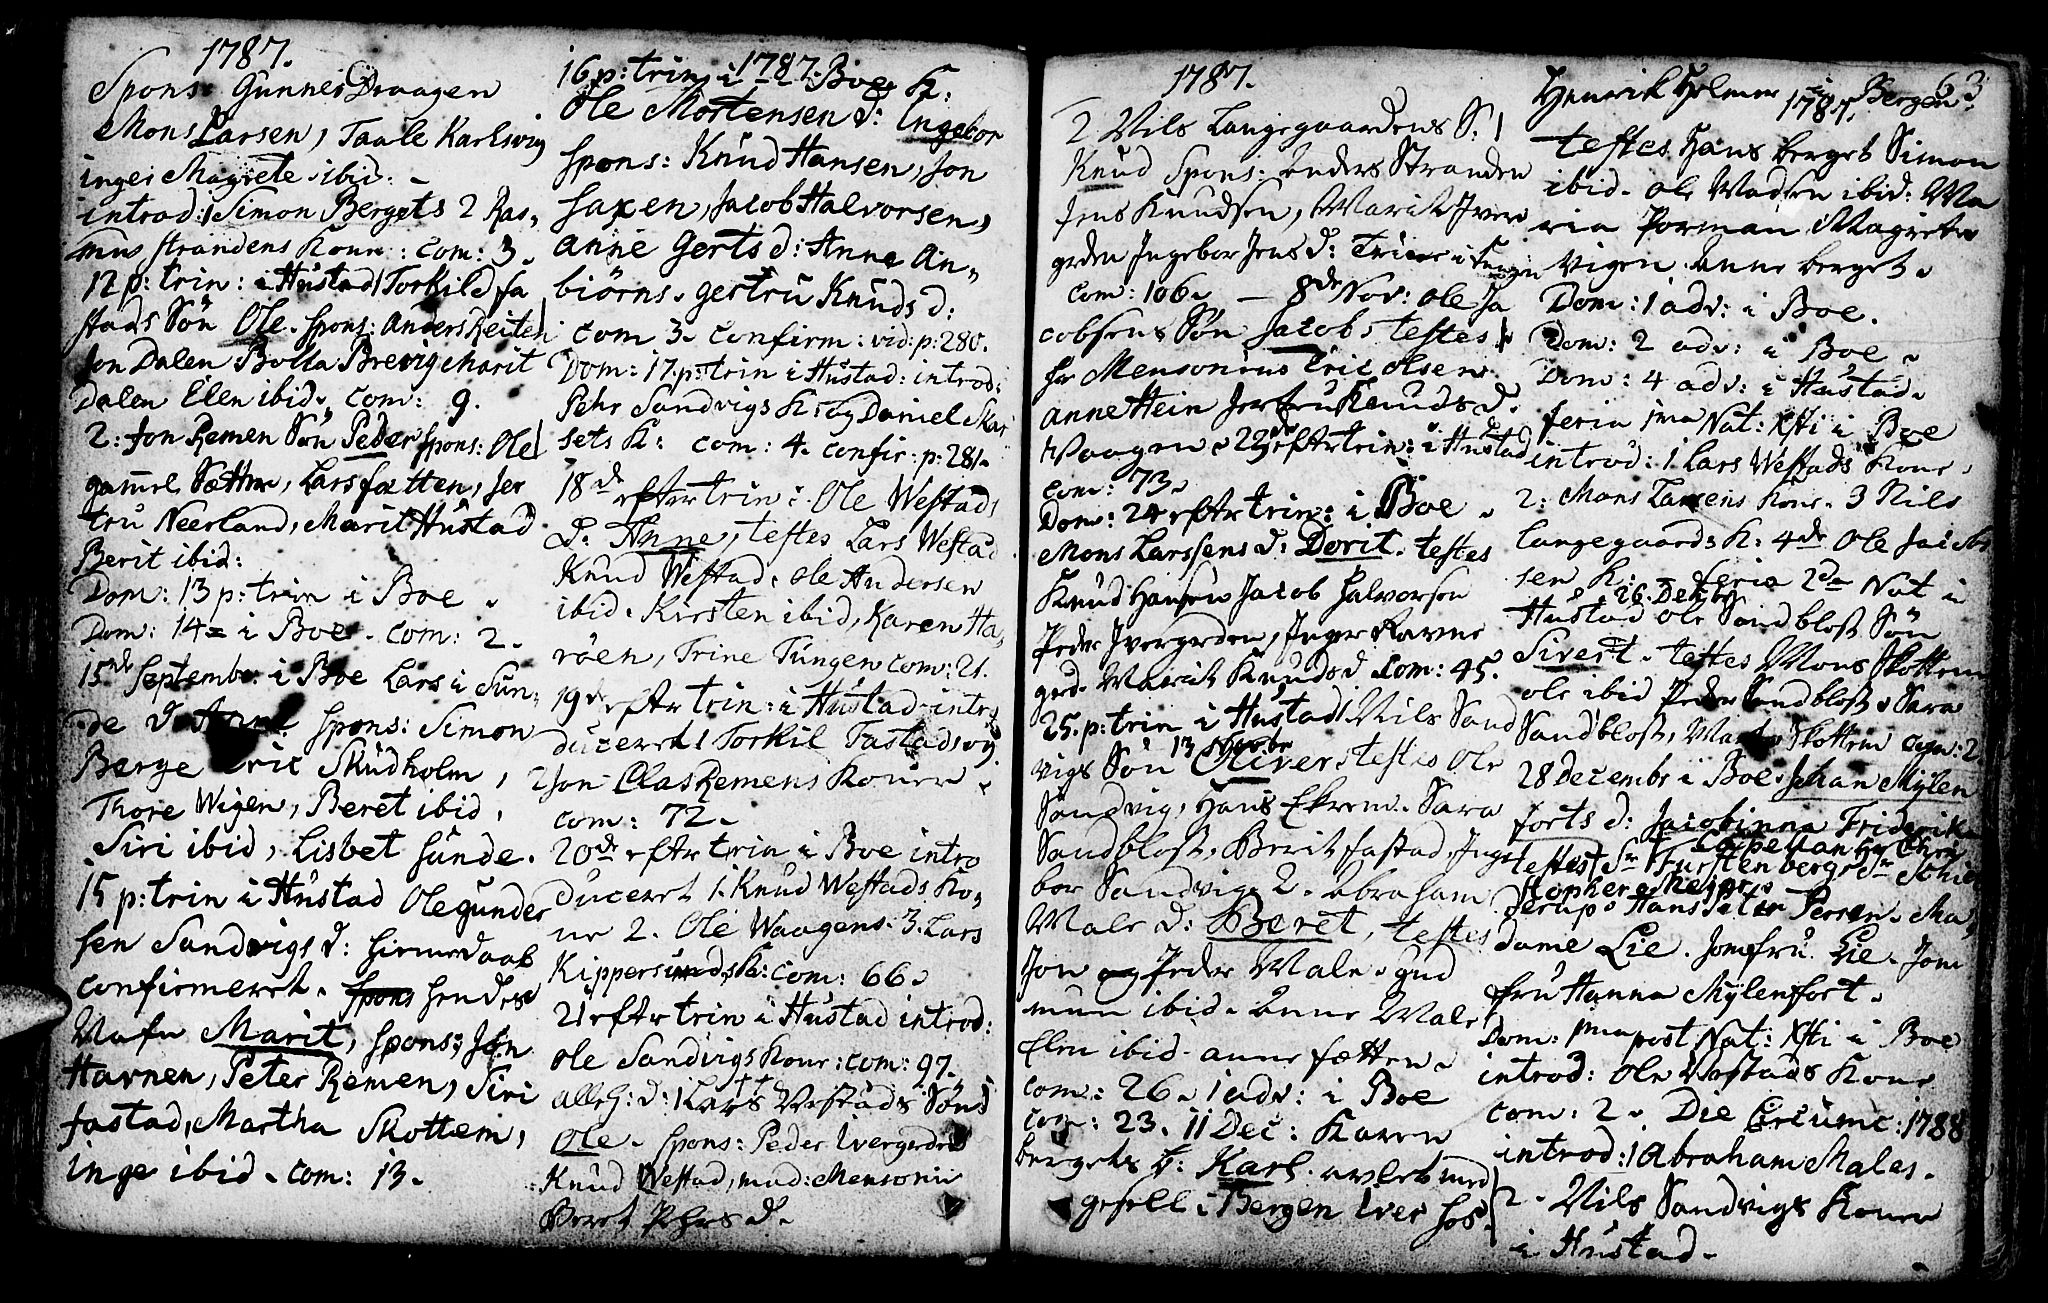 1787.
Spons: Gunner Draagen
Mons Larsen, Taale Karlsvig
inger Magrete ibid. -
introd: 1 Simon Bergets 2 Ras,,
mus strandens Kone: com: 3.
12 p: trin: i Hustad 1 Torkild fa
stads Sön Ole. spons: Anders Reiten
Jon Dalen Bolla Brevig marit
Dalen Elen ibid. com: 9.
2: Jon Remen Sön Peder spons: Ole
gamel Sætter, Lars fætten, Jer
tru Neerland, Marit Hustad
Berit ibid:
Dom: 13 p: trin i Boe.
Dom: 14 = i Boe. com: 2.
15de Septembr. i Boe Lars i Sun,
de d. Anne spons: Simon
Berge Eric Skudholm,
Thore Wigen, Beret ibid,
Siri ibid, Lisbet sunde.
15 p: trin i Hustad Ole gunder
sen Sandvigs d: hiemedaab
confirmeret. hendes
Nafn Marit, spons: Jon
Havnen, Peter Remen, Siri
fastad, Martha Skottem,
inge ibid. com: 13.
1787.
16 p: trin i Boe K:
Ole Mortensen d: Ingebor
spons: Knud Hansen, Jon
saxen, Jacob Halvorsen,
Anne Gerts d: Anne An,,
biörns. gertru Knuds d:
com 3. confirm: vid: p: 280.
Dom: 17. p: trin i Hustad: introd:
Pehr Sandvigs K: og Daniel Skar
sets K: com: 4. confir: p: 281.
18de efter trin: Ole Westads
d. Anne, testes Lars Westad
Knud Westad. Ole Andersen
ibid. Kirsten ibid, Karen Ha,
röen, Trine Tungen com: 21.
19de efter trin: i Hustad intro
duceret 1 Torkil Fastads og
2 Jon Clas Remens Koner.
com: 72.
20de efter trin i Boe intro
duceret 1. Knud Westads Ko,
ne 2. Ole Waagens. 3. Lars
Kippersunds K: com: 66.
21 efter trin i Hustad introd:
ole Sandvigs Kone: com: 97.
alleh: d: 1 Lars Vestads Söns
Ole. spons: Peder Ivergerdet
Knud Westad, mad: Mensonii
Beret Pehrs d.
1787.
2 Nils Langegaardens S:
Knud Spons: Enders Stranden
Jens Knudsen, Marit Iver
gerden Ingebor Jens d: Trine i Tungen
com: 106. - 8de Nov: Ole Ja
cobsens Sön Jacob testes
hr Mensonius Eric olsen
anne Hein Jertru Knuds d.
Vaagen. 22de efter trin: i Hustad
com: 73.
Dom: 24 efter trin: i Boe.
Mons Larssens d: Dorit. testes
Knud Hansen Jacob Halvorsen
Peder Ivergerden, Inger Karne
grd. Marit Knuds d. com: 45.
25. p: trin i Hustad 1 Nils Sand
13 Novbr
vigs Sön Oliver testes Ole
Sandvig, Hans Ekrem. Sara
Sandblost, Berit fastad, Inge
bor Sandvig. 2. Abraham
Male d: Beret, testes
Jon og Peder Male. gud
mun ibid. Anne Male
Elen ibid. anne fætten.
com: 26. 1 adv: i Boe
com: 23. 11 Dec: Karen
bergets S: Karl. avlet med
gesell i Bergen Iver hos
63
Henrik Holmer i Bergen.
1787.
testes Hans berget Simon
ibid. Ole Madsen ibid: Ma
ria Porman Magrete
Vigen. Anne berget.
Dom: 1 adv: i Boe.
Dom: 2 adv: i Boe.
Dom: 4 adv: i Hustad.
feria 1ma Nat: Xsti i Boe
introd: 1 Lars Westads Kone,
2: Mons Larsens Kone. 3 Nils
Langegaards K: 4de Ole Jacob
sen K: - feria 2da Nat i
26. Decbr
Hustad Ole Sandblost Sön
Sivert. testes Mons Skottem
ole ibid Peder Sandblost. Sara
Sandblost, Skottem com: 2
28 Decembr i Boe. Johan Mylen
forts d: Jacobinna Friderika
testes Sr Furstenberg
Hans Peter Persen. Ma,
dame Lie. Jomfru Lie. Jom
fru Hanna Mylenfort.
Dom: 1ma post Nat: Xsti i Boe
introd: Ole Vestads Kone
com: 2. Die Circumc: 1788
introd: 1 Abraham Males.
2. Nils Sandvigs Koner
i Hustad.